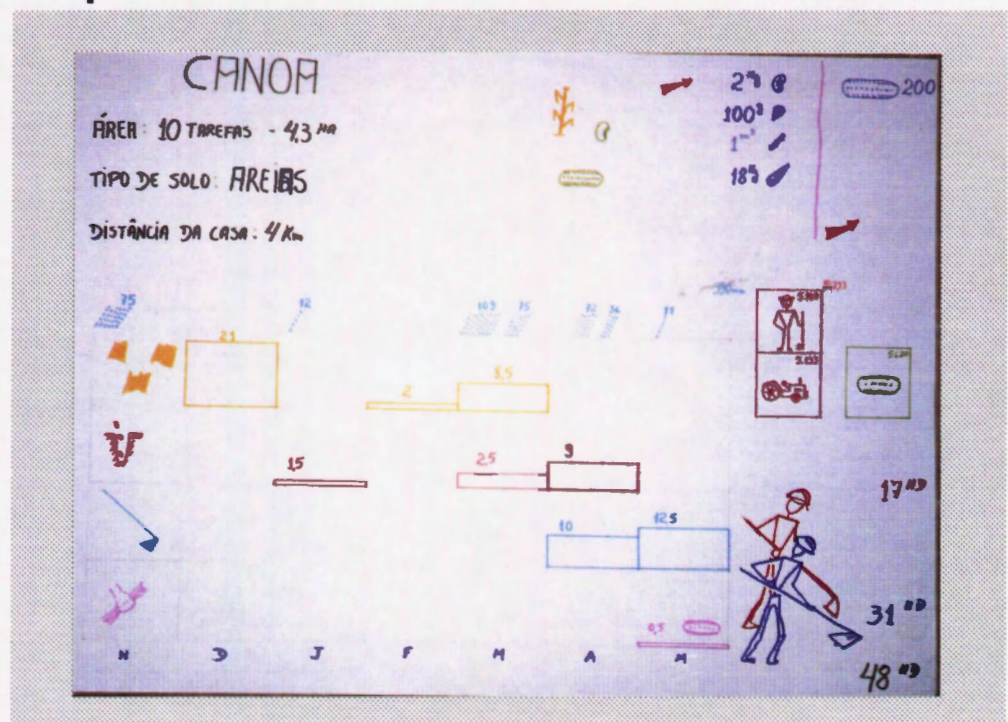 CANOA
ÁREA: 10 TAREFAS - 4,3 HA
TIPO DE SOLO: AREIAS
DISTÂNCIA DA CASA: 4 Km
2
100
1
18
200
75
12
103
75
72
11
21
2
8,5
1,5
2,5
9
10
12,5
0,5
17 HD
31 HD
48 HD
N D J F M A M